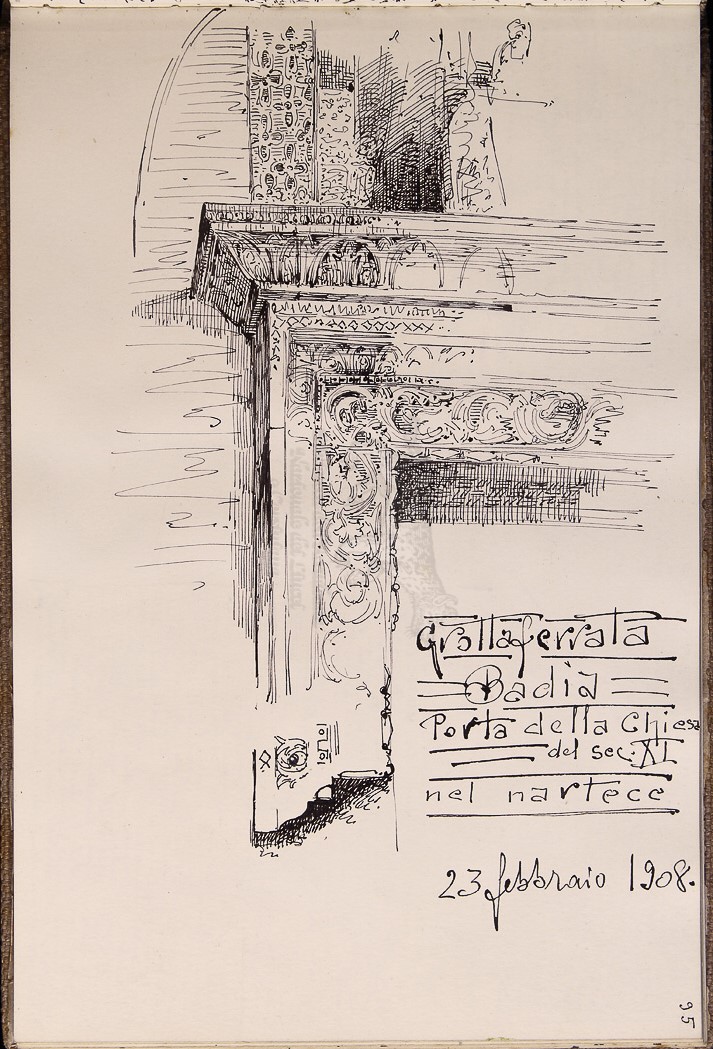 Grottaferrata
Badia
Porta della Chiesa
del sec. XI
nel nartece
23 febbraio 1908.
95